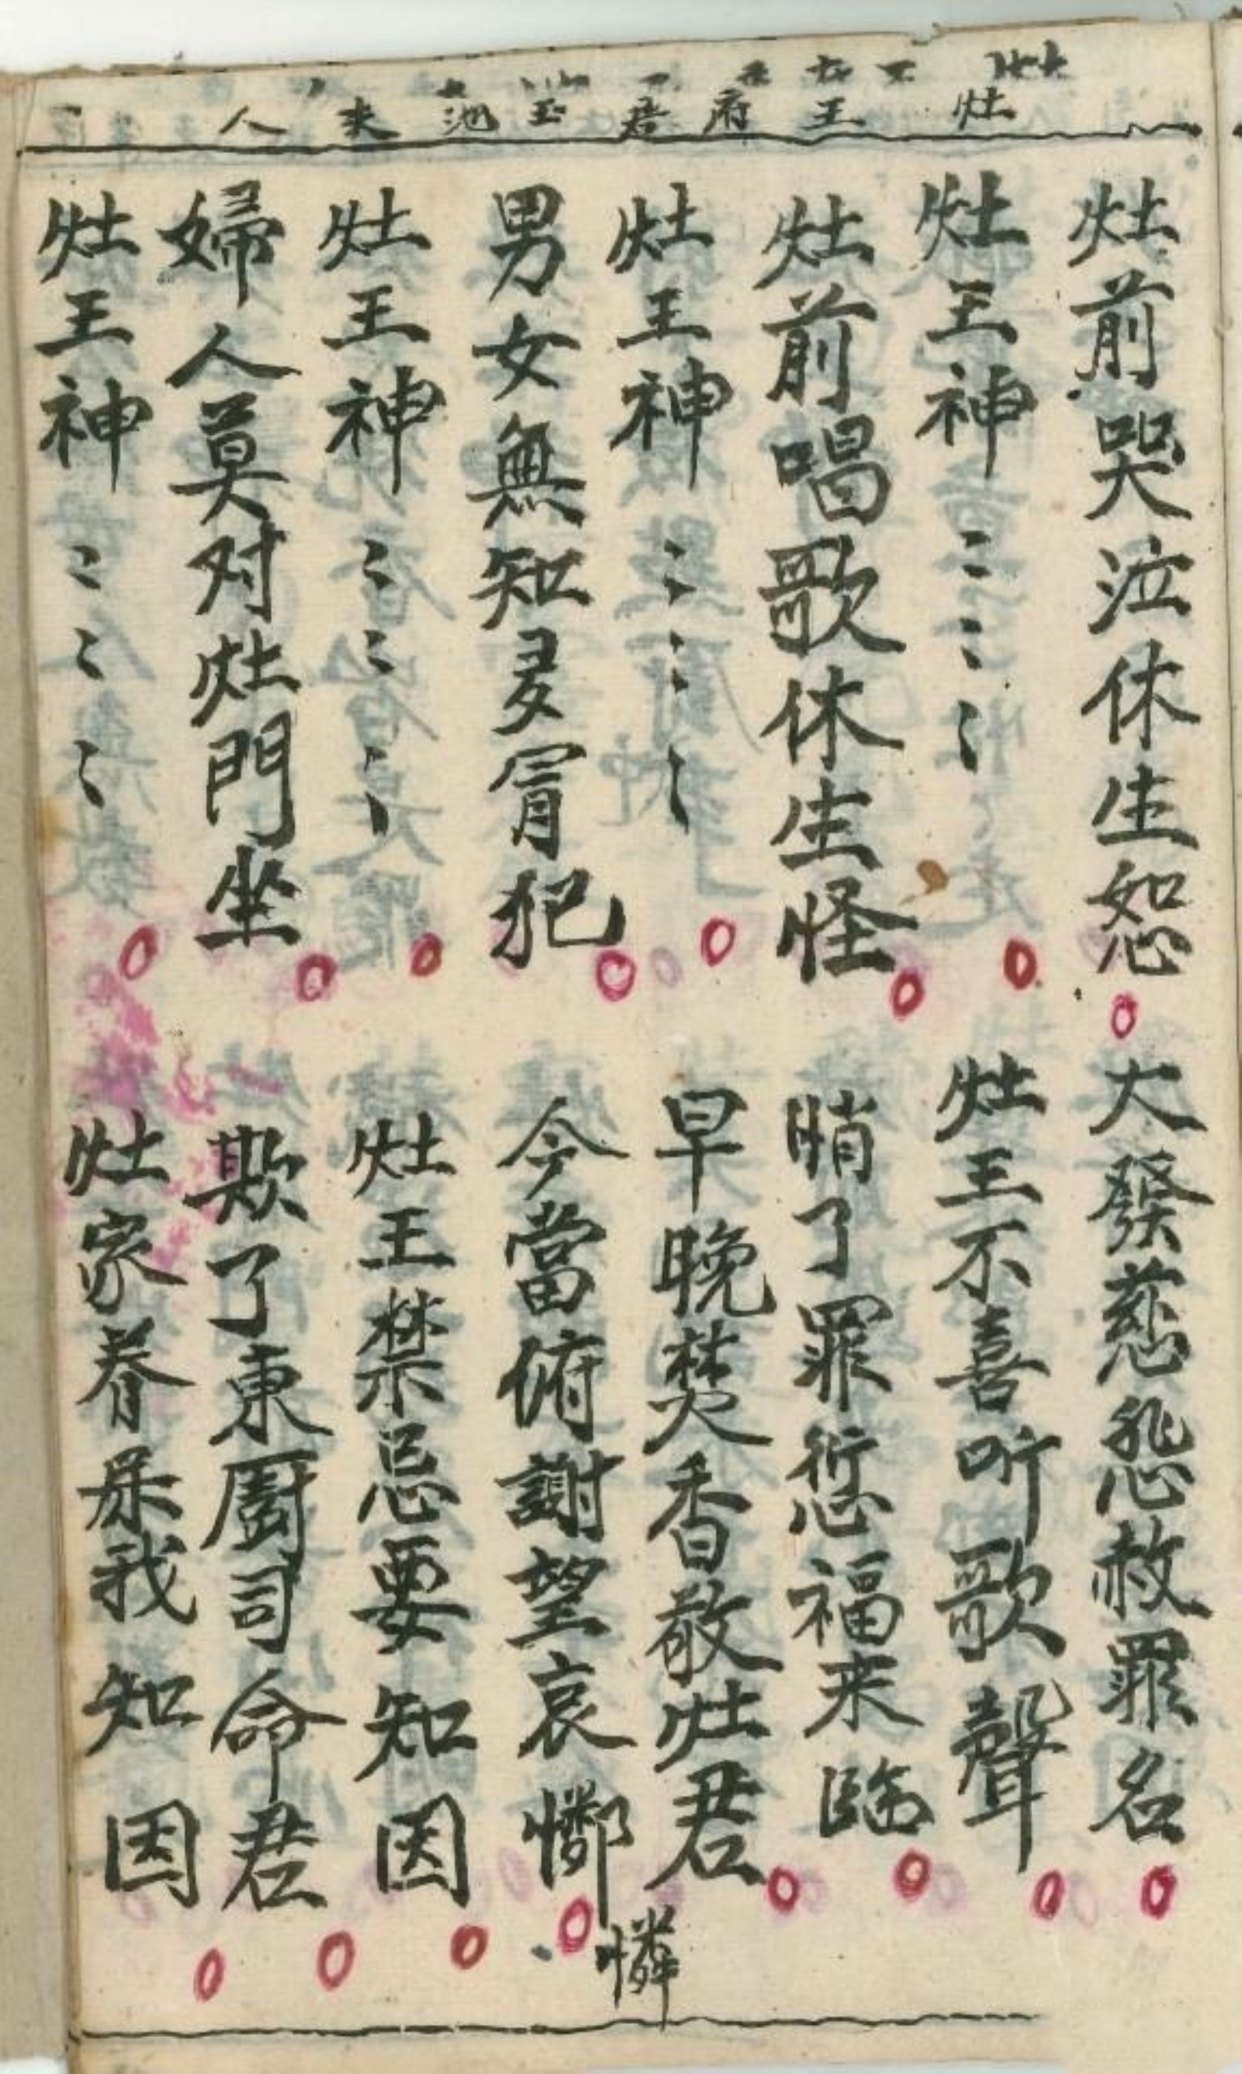 灶王府君玉池夫人
灶前哭泣休生怒 大發慈悲赦罪名
灶王神〻〻〻 灶王不喜听歌聲
灶前唱歌休生怪 消了罪愆福来臨
灶王神〻〻〻 早晚焚香敬灶君
男女無知多冒犯 今當俯謝望哀憐
憐
灶王神〻〻〻 灶王禁忌要知因
婦人莫对灶門坐 欺了東厨司命君
灶王神〻〻〻 灶家眷属我知因